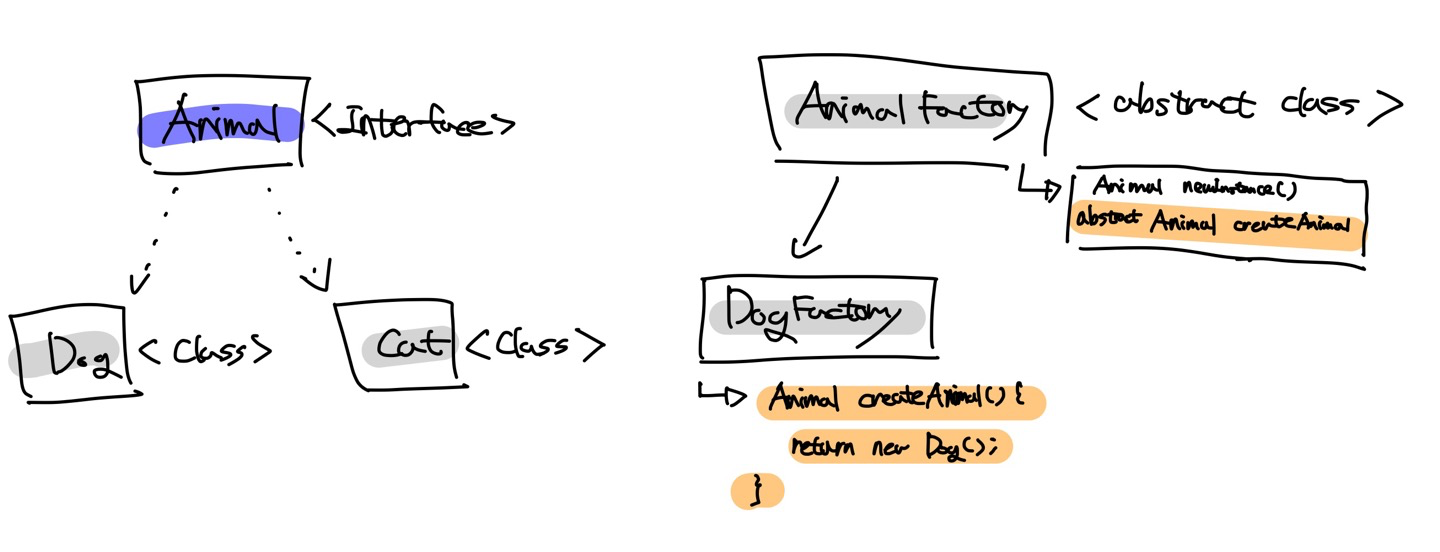 Animal <Interface>
Dog <Class>
Cat <Class>
Animal Factory <abstract class>
Animal newInstance()
abstract Animal createAnimal
DogFactory
Animal createAnimal() {
return new Dog();
}